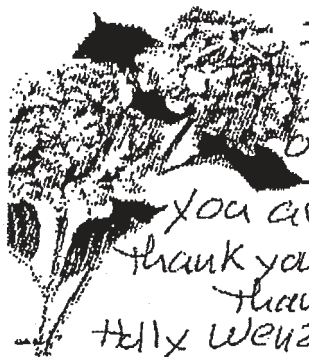 you a
thank you
than
Holly Wenz